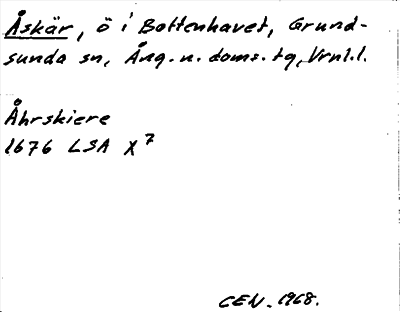 Åskär, ö i Bottenhavet, Grund-
sunda sn, Ång. n. doms. tg, Vrnl.l.
Åhrskiere
1676 LSA X 7
CEN. 1968.